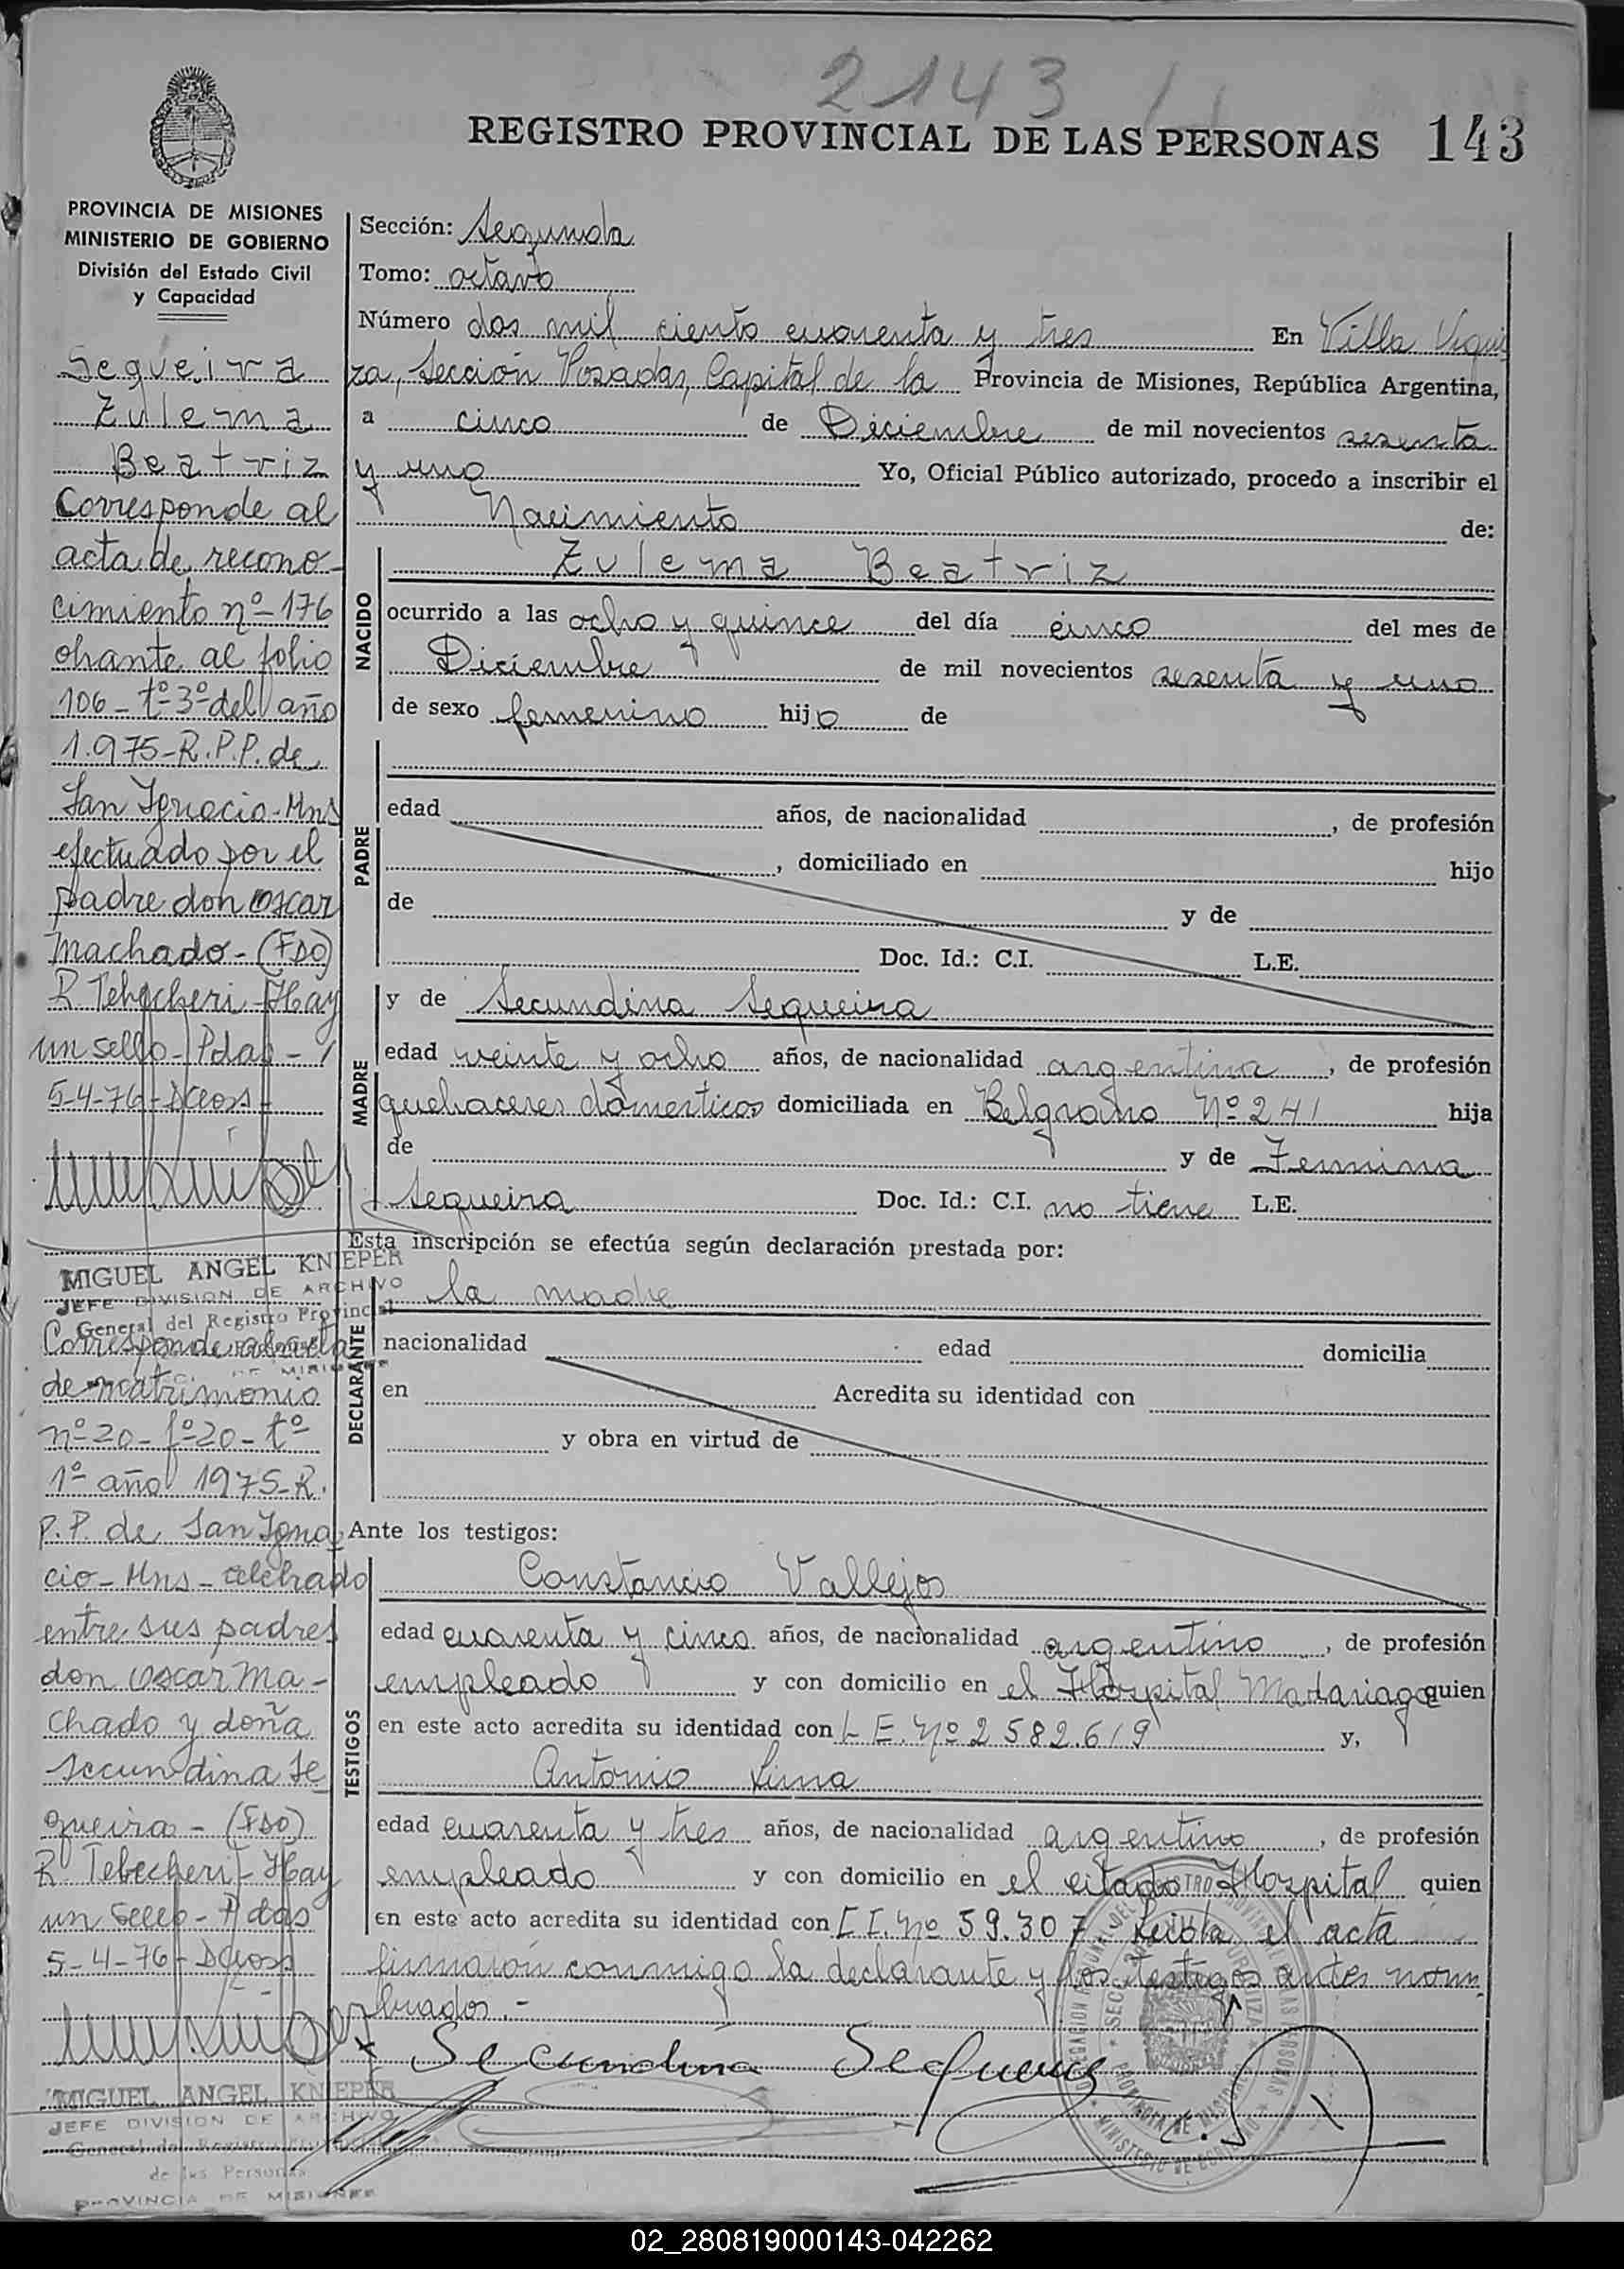 2143
REGISTRO PROVINCIAL DE LAS PERSONAS 143
PROVINCIA DE MISIONES
MINISTERIO DE GOBIERNO
División del Estado Civil
y Capacidad
Sequeira
Zulema
Beatriz
Corresponde al
acta de recono-
cimiento nº 176
obrante al folio
106 - tº 3º del año
1.975 - R.P.P. de
San Ignacio - Mns
efectuado por el
padre don Oscar
Machado - (Fdo)
R Tebecheri - Hay
un sello - Pdas -
5-4-76 -
MIGUEL ANGEL KNIEPER
JEFE DIVISION DE ARCHIVO
General del Registro Provincial
Corresponde al acta
de matrimonio
nº 20 - fº 20 - tº
1º año 1975 - R.
P.P. de San Igna
cio - Mns - celebrado
entre sus padres
don Oscar Ma-
chado y doña
Secundina Se
queira - (Fdo)
R. Tebecheri - Hay
un sello - Pdas
5-4-76 -
MIGUEL ANGEL KNIEPER
JEFE DIVISION DE ARCHIVO
General del Registro Provincial
de las Personas
PROVINCIA DE MISIONES
Sección: Segunda
Tomo: octavo
Número dos mil ciento cuarenta y tres En Villa Urqui
za, Sección Posadas, Capital de la Provincia de Misiones, República Argentina,
a cinco de Diciembre de mil novecientos sesenta
y uno Yo, Oficial Público autorizado, procedo a inscribir el
Nacimiento de:
NACIDO
Zulema Beatriz
ocurrido a las ocho y quince del día cinco del mes de
Diciembre de mil novecientos sesenta y uno
de sexo femenino hijo de
PADRE
edad años, de nacionalidad , de profesión
, domiciliado en hijo
de y de
Doc. Id.: C.I. L.E.
MADRE
y de Secundina Sequeira
edad veinte y ocho años, de nacionalidad argentina, de profesión
quehaceres domesticos domiciliada en Belgrano Nº 241 hija
de y de Fermina
Sequeira Doc. Id.: C.I. no tiene L.E.
Esta inscripción se efectúa según declaración prestada por:
DECLARANTE
la madre
nacionalidad edad domicilia
en Acredita su identidad con
y obra en virtud de
Ante los testigos:
TESTIGOS
Constancio Vallejos
edad cuarenta y cinco años, de nacionalidad argentino, de profesión
empleado y con domicilio en el Hospital Madariaga quien
en este acto acredita su identidad con L E. Nº 2582.619 y,
Antonio Lima
edad cuarenta y tres años, de nacionalidad argentino, de profesión
empleado y con domicilio en el citado Hospital quien
en este acto acredita su identidad con C I. Nº 59.307 - Leida el acta
firmaron conmigo la declarante y los testigos antes nom
brados. -
Secundina Sequeira
02_280819000143-042262